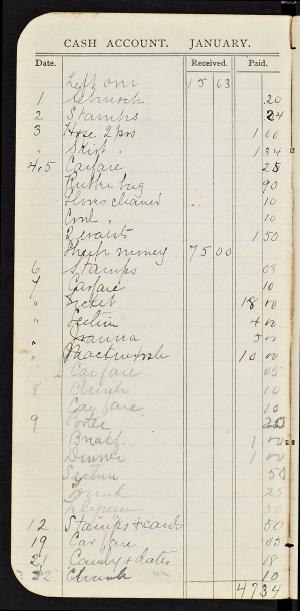 CASH ACCOUNT. JANUARY.
Date. Received. Paid.
Left over 15 63
1 Church .20
2 Stamps 24
3 Hose 2 prs 1 00
" Skirt 1 34
4,5 Carfare 25
90
Gloves cleaned 10
10
1 50
money 75 00
6 Stamps 08
7 Carfare 10
" Ticket 18 00
" Section 4 00
" 5 00
" Mackintosh 10 00
Carfare 05
8 Church 10
Carfare 10
9 Porter 25
Breakf. 1 00
Dinner 1 00
Section 50
25
50
12 Stamps & cards 50
19 Carfare 05
21 Candy & dates 18
22 Church 10
47 34